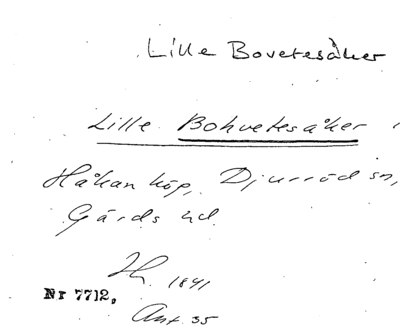 Lille Bovetesåker
Lille Bohvetesåker
Håkanköp, Djurröd sn,
Gärds hd.
1841
Nr 7712,
Ant. 35